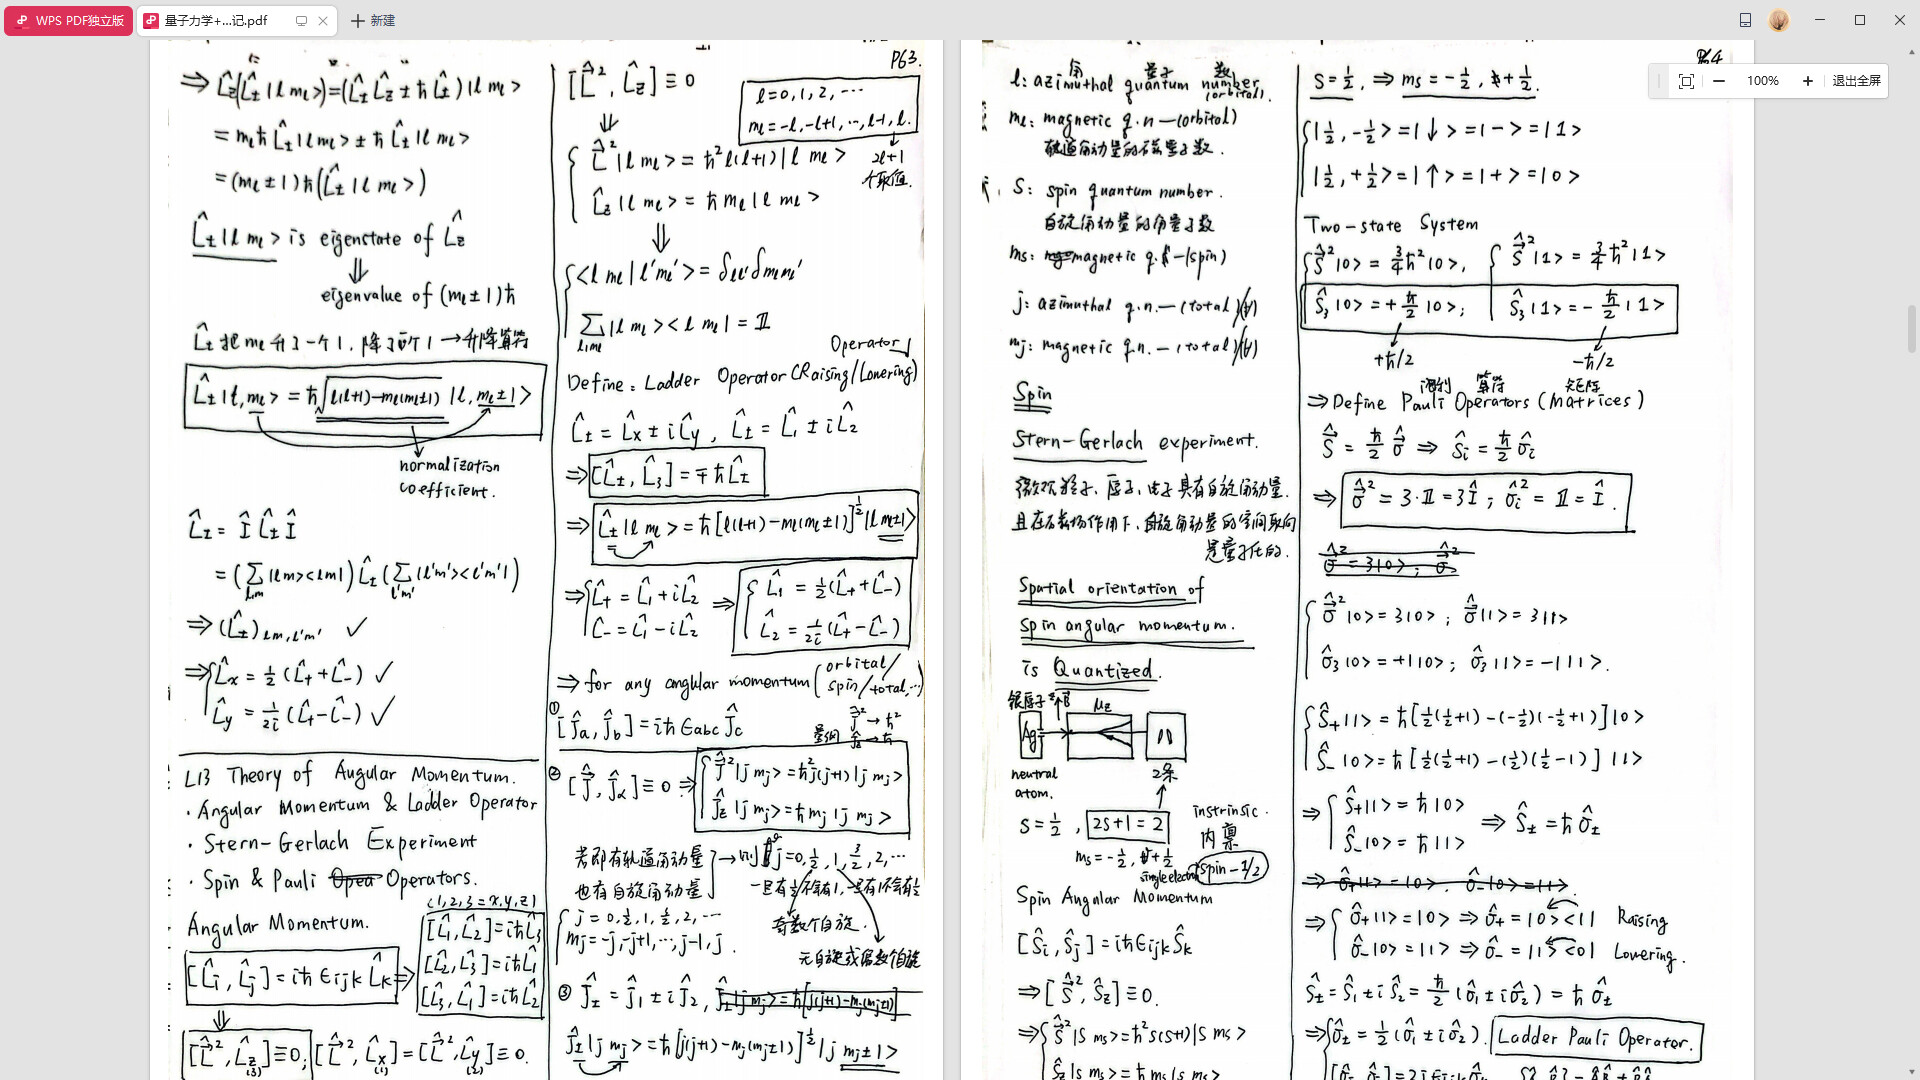 WPS PDF独立版
量子力学+...记.pdf
新建
100%
退出全屏
P63.
⇒ L̂z(L̂± |l ml>) = (L̂± L̂z ± ħ L̂±) |l ml>
= ml ħ L̂± |l ml> ± ħ L̂± |l ml>
= (ml ± 1) ħ (L̂± |l ml>)
L̂± |l ml> is eigenstate of L̂z
⇓
eigenvalue of (ml ± 1) ħ
L̂± 把 ml 升了一个1, 降了一个1 → 升降算符
L̂± |l, ml> = ħ √(l(l+1) - ml(ml±1)) |l, ml±1>
normalization
coefficient.
L̂± = Î L̂± Î
= (∑lm |lm><lm|) L̂± (∑l'm' |l'm'><l'm'|)
⇒ (L̂±)lm,l'm' ✓
⇒ { L̂x = 1/2 (L̂+ + L̂-) ✓
L̂y = 1/2i (L̂+ - L̂-) ✓
L13 Theory of Angular Momentum.
· Angular Momentum & Ladder Operator
· Stern-Gerlach Experiment
· Spin & Pauli Operators.
(1,2,3 = x,y,z)
Angular Momentum.
[L̂i, L̂j] = iħ ϵijk L̂k ⇒
[L̂1, L̂2] = iħ L̂3
[L̂2, L̂3] = iħ L̂1
[L̂3, L̂1] = iħ L̂2
⇓
[L̂², L̂z] ≡ 0; [L̂², L̂x] = [L̂², L̂y] ≡ 0.
(3) (1) (2)
[L̂², L̂z] ≡ 0
l = 0, 1, 2, ⋯
ml = -l, -l+1, ⋯, l-1, l.
2l+1
个取值.
⇓
{ L̂² |l ml> = ħ² l(l+1) |l ml>
L̂z |l ml> = ħ ml |l ml>
⇓
{ <l ml | l' ml'> = δll' δmlml'
∑l,ml |l ml><l ml| = 𝟙
Operator
Define: Ladder Operator (Raising/Lowering)
L̂± = L̂x ± i L̂y , L̂± = L̂1 ± i L̂2
⇒ [L̂±, L̂3] = ∓ ħ L̂±
⇒ L̂± |l ml> = ħ [l(l+1) - ml(ml±1)]^1/2 |l ml±1>
⇒ { L̂+ = L̂1 + i L̂2 ⇒ { L̂1 = 1/2 (L̂+ + L̂-)
L̂- = L̂1 - i L̂2 L̂2 = 1/2i (L̂+ - L̂-)
⇒ for any angular momentum (orbital/
spin/total, ⋯)
① [Ĵa, Ĵb] = iħ ϵabc Ĵc
量纲 Ĵ² → ħ²
Ĵz → ħ
② [Ĵ, Ĵα] ≡ 0 ⇒ { Ĵ² |j mj> = ħ² j(j+1) |j mj>
Ĵz |j mj> = ħ mj |j mj>
若即有轨道角动量
也有自旋角动量
→ 则 j = 0, 1/2, 1, 3/2, 2, ⋯
一旦有1/2不会有1, 一旦有1不会有1/2
{ j = 0, 1/2, 1, 3/2, 2, ⋯
mj = -j, -j+1, ⋯, j-1, j.
奇数个自旋.
无自旋或偶数个自旋
③ Ĵ± = Ĵ1 ± i Ĵ2, Ĵ± |j mj> = ħ[j(j+1) - mj(mj±1)]
Ĵ± |j mj> = ħ [j(j+1) - mj(mj±1)]^1/2 |j mj±1>
P64
角 量子 数
l: azimuthal quantum number
(orbital).
ml: magnetic q.n - (orbital)
轨道角动量的磁量子数.
S: spin quantum number.
自旋角动量的角量子数
ms: magnetic q. - (spin)
j: azimuthal q.n. - (total)
mj: magnetic q.n. - (total)
Spin
Stern-Gerlach experiment.
微观粒子、原子、电子具有自旋角动量.
且在磁场作用下, 自旋角动量的空间取向
是量子化的.
Spatial orientation of
Spin angular momentum.
is Quantized.
银原子
Ag
μz
neutral
atom.
2条
S = 1/2 , 2S+1 = 2
instrinsic.
内禀
ms = -1/2, +1/2
single electron
spin-1/2
Spin Angular Momentum
[Ŝi, Ŝj] = iħ ϵijk Ŝk
⇒ [Ŝ², Ŝz] ≡ 0.
⇒ { Ŝ² |s ms> = ħ² s(s+1) |s ms>
Ŝz |s ms> = ħ ms |s ms>
S = 1/2, ⇒ ms = -1/2, +1/2.
{ |1/2, -1/2> = |↓> = |-> = |1>
|1/2, +1/2> = |↑> = |+> = |0>
Two-state System
{ Ŝ² |0> = 3/4 ħ² |0>, { Ŝ² |1> = 3/4 ħ² |1>
Ŝ3 |0> = + ħ/2 |0>; Ŝ3 |1> = - ħ/2 |1>
+ħ/2 -ħ/2
泡利 算符 矩阵
⇒ Define Pauli Operators (Matrices)
Ŝ = ħ/2 σ̂ ⇒ Ŝi = ħ/2 σ̂i
⇒ σ̂² = 3·𝟙 = 3Î ; σ̂i² = 𝟙 = Î .
{ σ̂² |0> = 3|0> ; σ̂ |1> = 3|1>
σ̂3 |0> = +1|0> ; σ̂3 |1> = -1|1>.
{ Ŝ+ |1> = ħ [1/2(1/2+1) - (-1/2)(-1/2+1)] |0>
Ŝ- |0> = ħ [1/2(1/2+1) - (1/2)(1/2-1)] |1>
⇒ { Ŝ+ |1> = ħ |0> ⇒ Ŝ± = ħ σ̂±
Ŝ- |0> = ħ |1>
⇒ σ̂+ |1> = |0>. σ̂- |0> = |1>.
⇒ { σ̂+ |1> = |0> ⇒ σ̂+ = |0><1| Raising
σ̂- |0> = |1> ⇒ σ̂- = |1><0| Lowering.
Ŝ± = Ŝ1 ± i Ŝ2 = ħ/2 (σ̂1 ± i σ̂2) = ħ σ̂±
⇒ { σ̂± = 1/2 (σ̂1 ± i σ̂2). Ladder Pauli Operator.